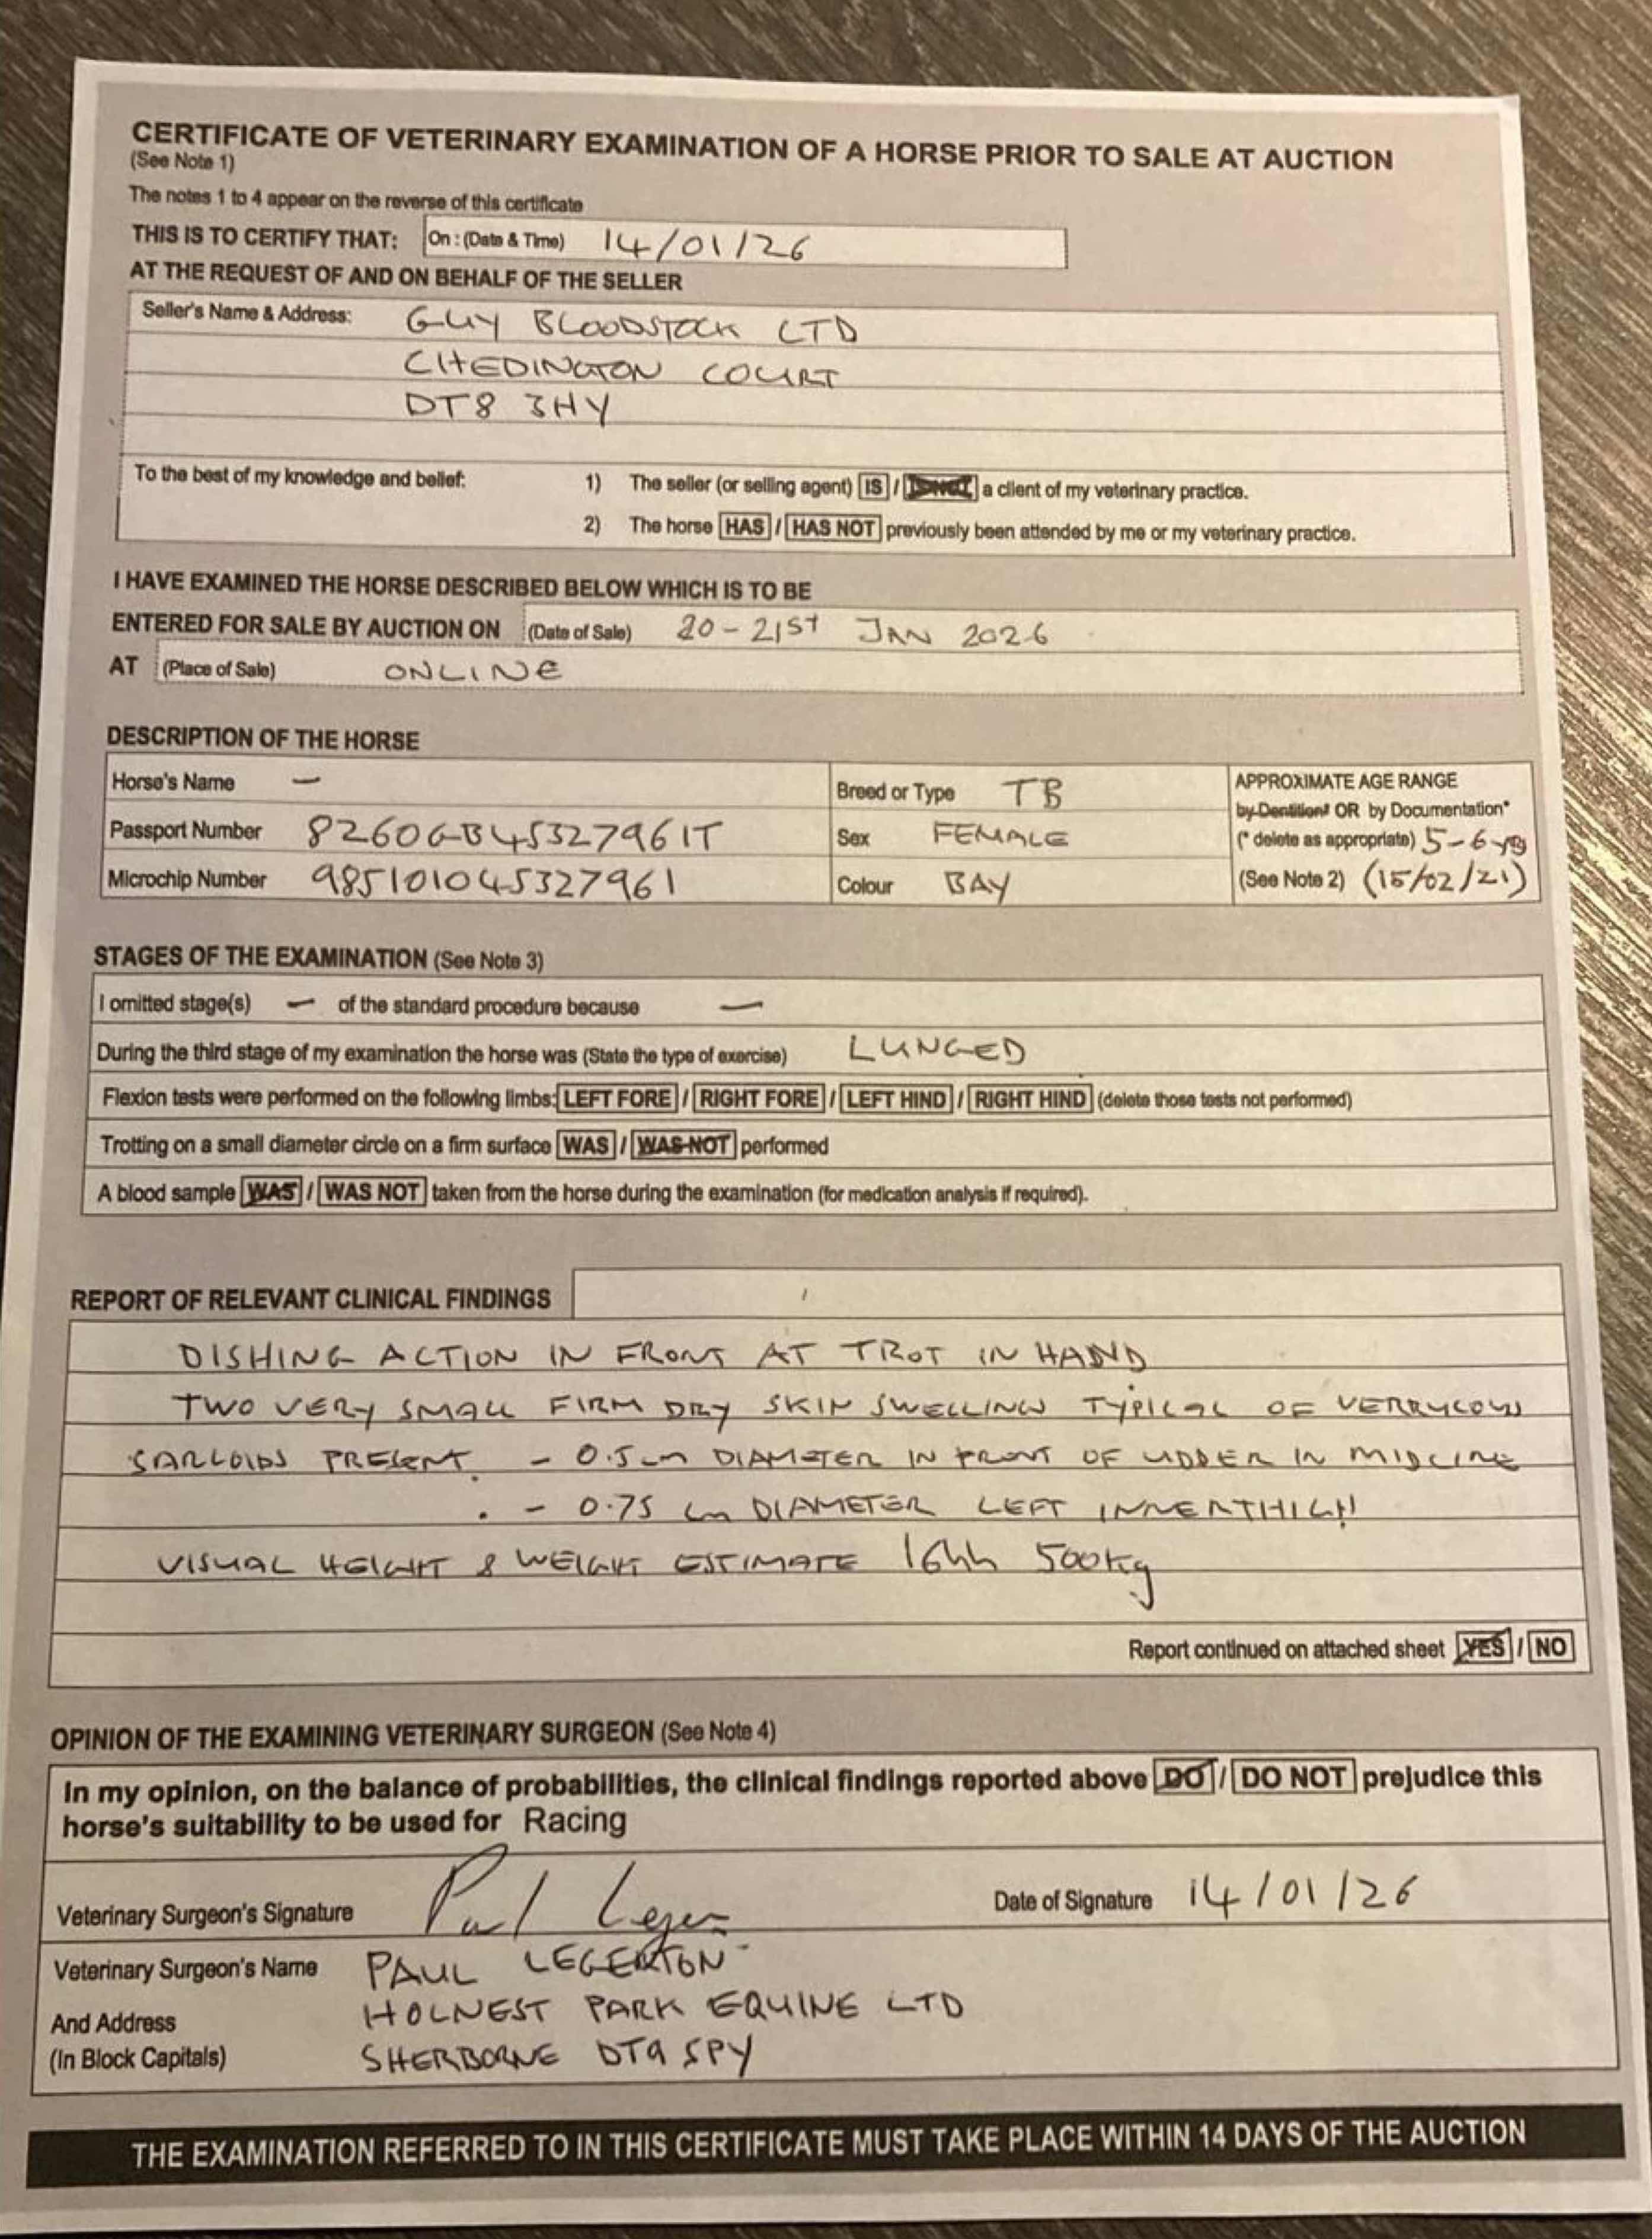 CERTIFICATE OF VETERINARY EXAMINATION OF A HORSE PRIOR TO SALE AT AUCTION
(See Note 1)
The notes 1 to 4 appear on the reverse of this certificate
THIS IS TO CERTIFY THAT: On : (Date & Time) 14/01/26
AT THE REQUEST OF AND ON BEHALF OF THE SELLER
Seller's Name & Address: GUY BLOODSTOCK LTD
CHEDINGTON COURT
DT8 3HY
To the best of my knowledge and belief: 1) The seller (or selling agent) IS / IS NOT a client of my veterinary practice.
2) The horse HAS / HAS NOT previously been attended by me or my veterinary practice.
I HAVE EXAMINED THE HORSE DESCRIBED BELOW WHICH IS TO BE
ENTERED FOR SALE BY AUCTION ON (Date of Sale) 20 - 21st JAN 2026
AT (Place of Sale) ONLINE
DESCRIPTION OF THE HORSE
Horse's Name — Breed or Type TB APPROXIMATE AGE RANGE
by Dentition* OR by Documentation*
Passport Number 8260GB45327961T Sex FEMALE (* delete as appropriate) 5-6 yrs
Microchip Number 985101045327961 Colour BAY (See Note 2) (15/02/21)
STAGES OF THE EXAMINATION (See Note 3)
I omitted stage(s) — of the standard procedure because —
During the third stage of my examination the horse was (State the type of exercise) LUNGED
Flexion tests were performed on the following limbs: LEFT FORE / RIGHT FORE / LEFT HIND / RIGHT HIND (delete those tests not performed)
Trotting on a small diameter circle on a firm surface WAS / WAS NOT performed
A blood sample WAS / WAS NOT taken from the horse during the examination (for medication analysis if required).
REPORT OF RELEVANT CLINICAL FINDINGS
DISHING ACTION IN FRONT AT TROT IN HAND
TWO VERY SMALL FIRM DRY SKIN SWELLINGS TYPICAL OF VERRUCOUS
SARCOIDS PRESENT. - 0.5cm DIAMETER IN FRONT OF UDDER IN MIDLINE
- 0.75 cm DIAMETER LEFT INNERTHIGH
VISUAL HEIGHT & WEIGHT ESTIMATE 16hh 500kg
Report continued on attached sheet YES / NO
OPINION OF THE EXAMINING VETERINARY SURGEON (See Note 4)
In my opinion, on the balance of probabilities, the clinical findings reported above DO / DO NOT prejudice this
horse's suitability to be used for Racing
Veterinary Surgeon's Signature Paul Leger Date of Signature 14/01/26
Veterinary Surgeon's Name PAUL LEGERTON
And Address HOLNEST PARK EQUINE LTD
(In Block Capitals) SHERBORNE DT9 5PY
THE EXAMINATION REFERRED TO IN THIS CERTIFICATE MUST TAKE PLACE WITHIN 14 DAYS OF THE AUCTION